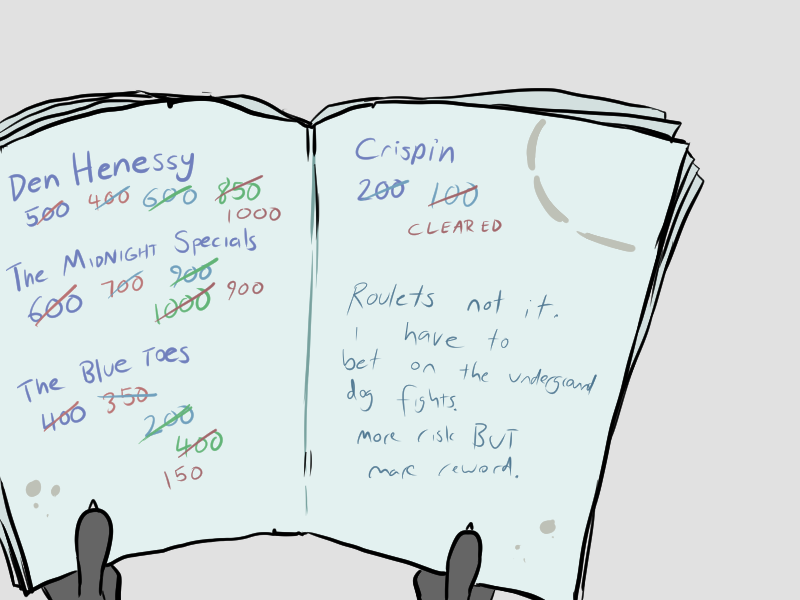 Den Henessy
500 400 600 850
1000
The MIDNIGHT Specials
600 700 900
1000 900
The Blue Toes
400 350
200
400
150
Crispin
200 100
CLEARED
Roulets not it.
i have to
bet on the undergrownd
dog fights.
more risk BUT
more reward.